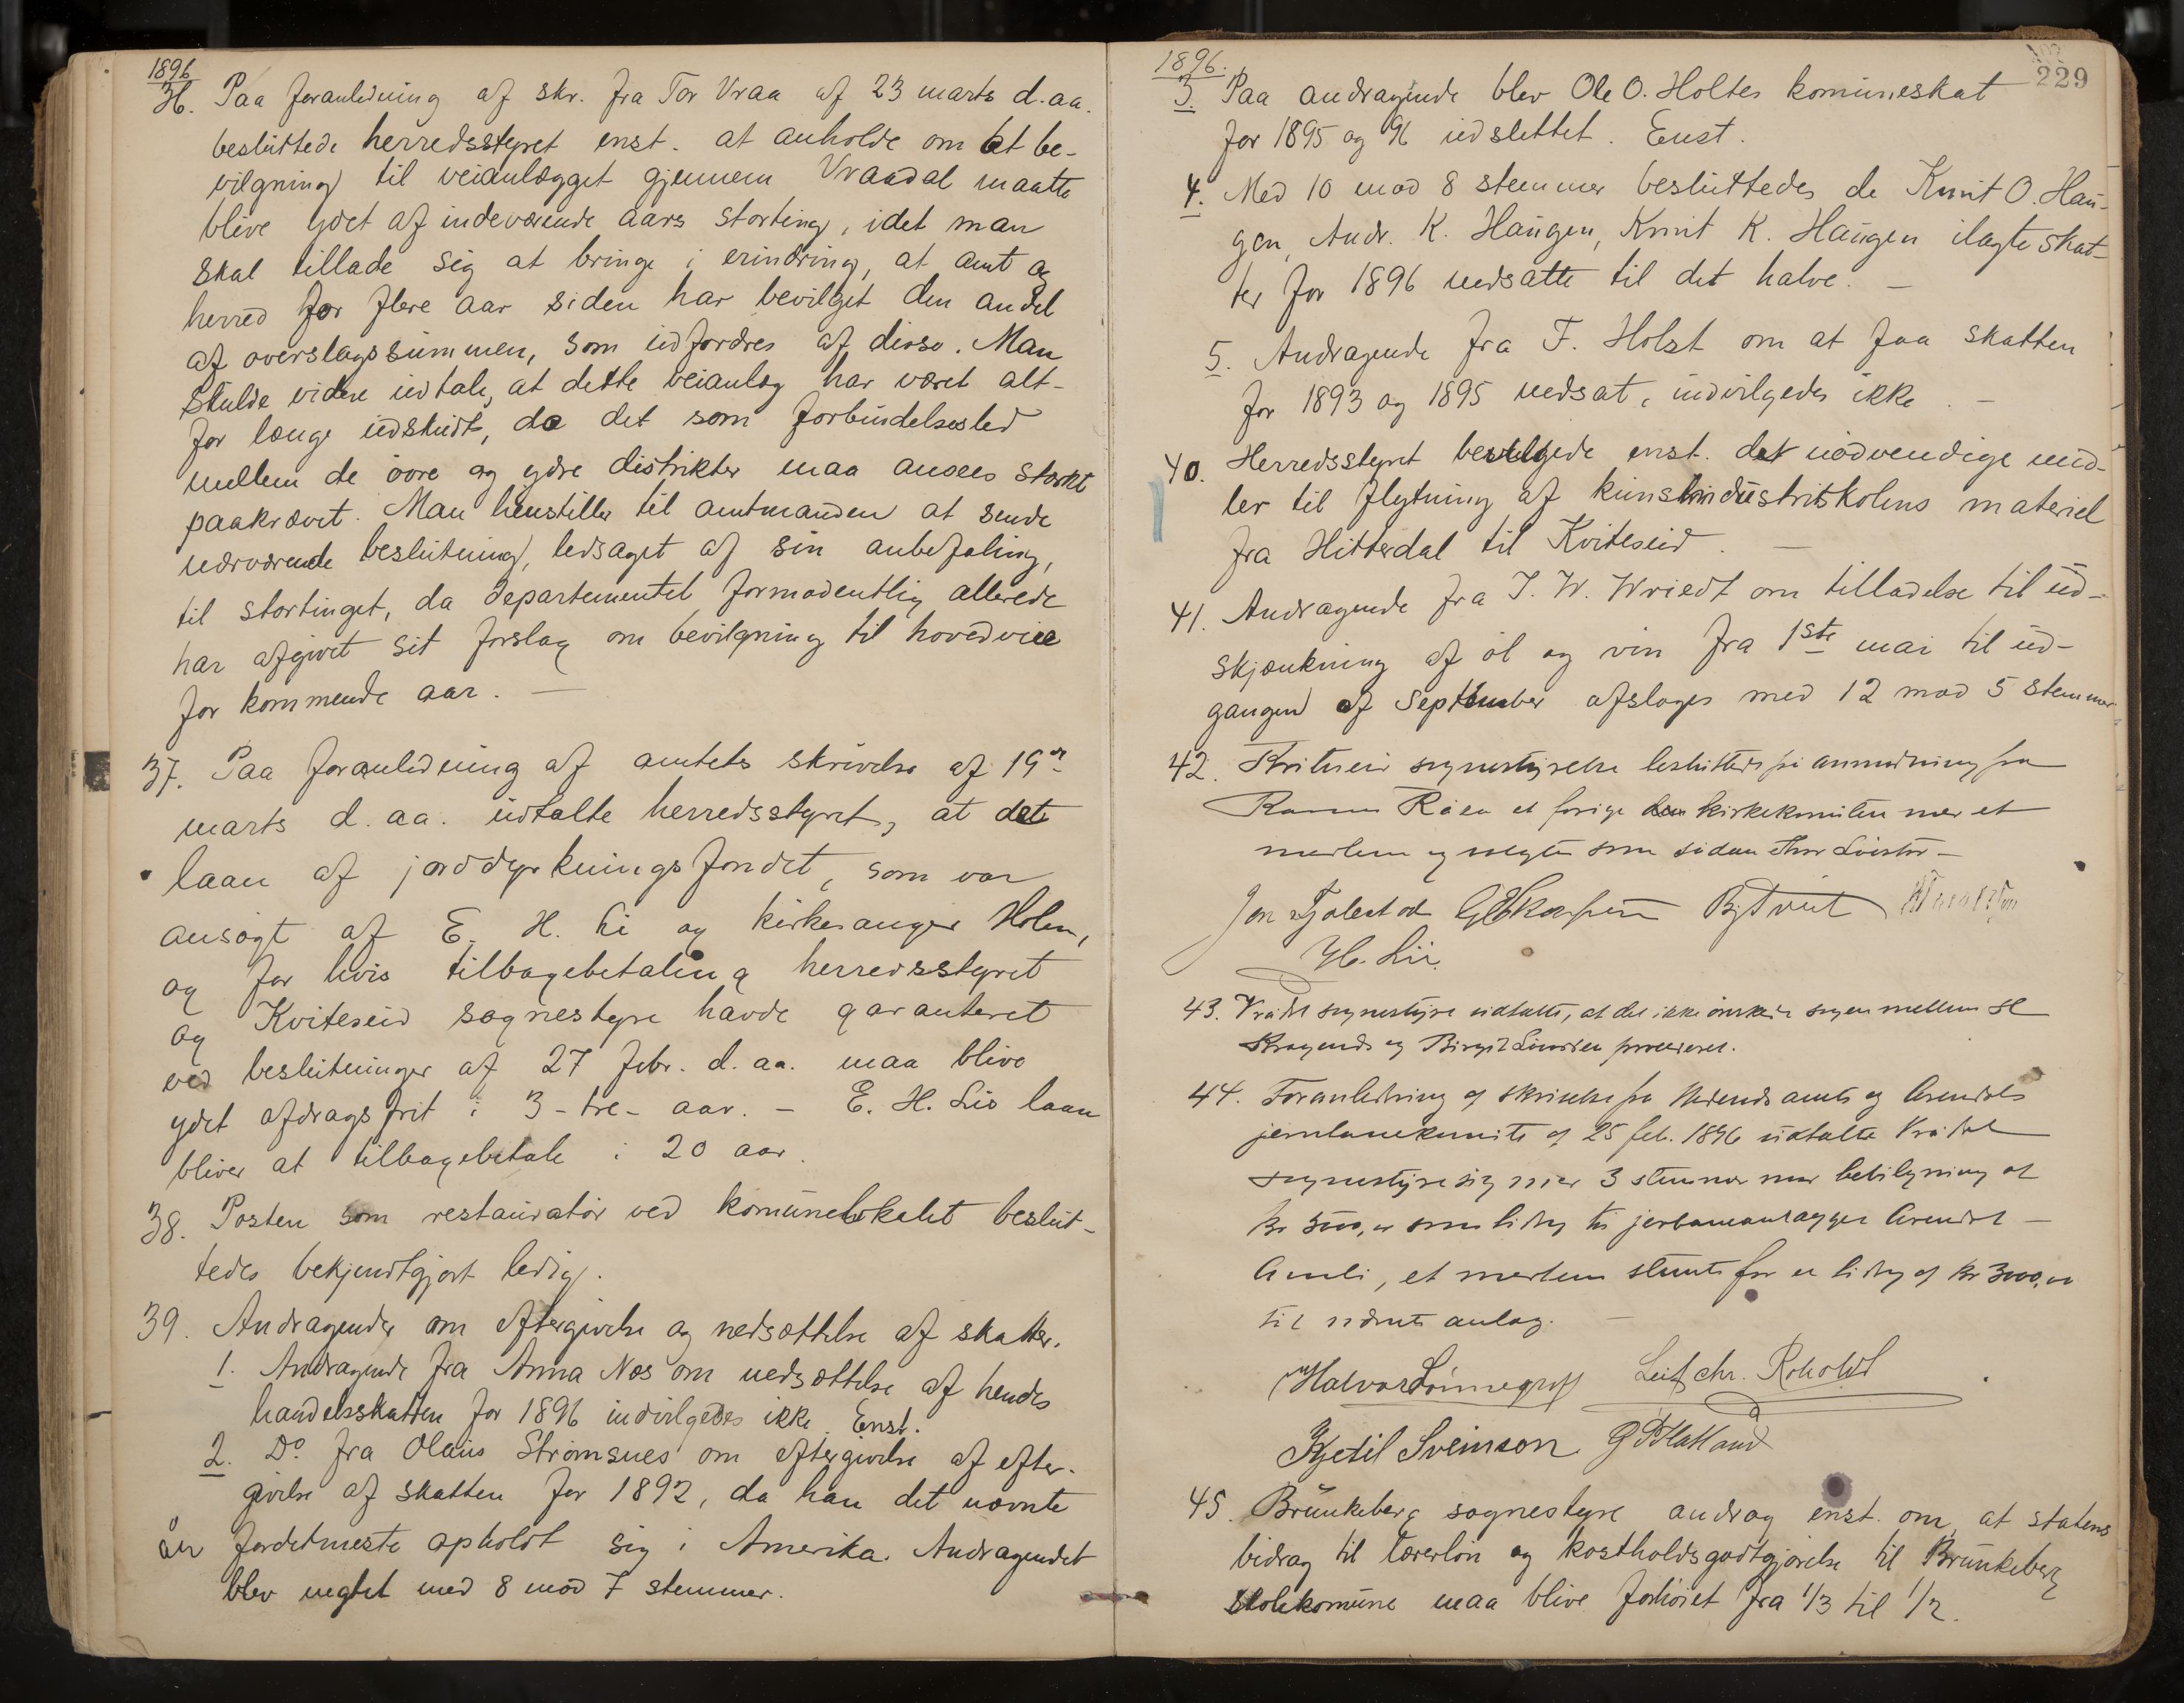 1896
36. Paa foranledning af skr. fra Tor Vraa af 23 marts d.aa.
besluttede herredsstyret enst. at anholde om at be-
vilgning til veianlægget gjennem Vraadal maatte
blive ydet af indeværende aars storting, idet man
skal tillade sig at bringe i erindring, at amt og
herred for flere aar siden har bevilget den andel
af overslagssummen, som udfordres af disse. Man
skulde videre udtale, at dette veianlæg har været alt-
for længe udskudt, da det som forbindelsesled
mellem de øvre og ydre distrikter maa ansees stærkt
paakrævet. Man henstiller til amtmanden at sende
nærværende beslutning, ledsaget af sin anbefaling,
til stortinget, da departementet formodentlig allerede
har afgivet sit forslag om bevilgning til hovedveie
for kommende aar. —
37. Paa foranledning af amtets skrivelse af 19de
marts d.aa. udtalte herredsstyret, at det
laan af jorddyrkningsfondet, som var
ansøgt af E. H. Li og kirkesanger Holen,
og for hvis tilbagebetaling herredsstyret
og Kviteseid sognestyre havde garanteret
ved beslutninger af 27 febr. d.aa. maa blive
ydet afdragsfrit i 3 - tre - aar. - E. H. Lis laan
bliver at tilbagebetale i 20 aar.
38. Posten som restauratør ved komunelokalet beslut-
tedes bekjendtgjort ledig.
39. Andragender om eftergivelse og nedsættelse af skatter.
1. Andragende fra Anna Næs om nedsættelse af hendes
handelsskatten for 1896 indvilgedes ikke. Enst.
2. Do fra Olaus Strømsnes om eftergivelse af efter-
givelse af skatten for 1892, da han det nævnte
år fordetmeste opholdt sig i Amerika. Andragendet
blev negtet med 8 mod 7 stemmer.
1896.
229
3. Paa andragende blev Ole O. Holtes komuneskat
for 1895 og 96 udslettet. Enst.
4. Med 10 mod 8 stemmer besluttedes de Knut O. Hau-
gen, Andr. K. Haugen, Knut K. Haugen ilagte skat-
ter for 1896 nedsatte til det halve. —
5. Andragende fra F. Holst om at faa skatten
for 1893 og 1895 nedsat, indvilgedes ikke. —
40. Herredsstyret bevilgede enst. det nødvendige mid-
ler til flytning af kunstindustriskolens materiel
fra Hitterdal til Kviteseid. —
41. Andragende fra J. W. Wriedt om tilladelse til ud-
skjænkning af øl og vin fra 1ste mai til ud-
gangen af September afsloges med 12 mod 5 stemmer
42. sognestyrelse på anmodning fra
at forige kirkekomiten med et
medlem og som sådan
Jon Tjolestad
H. Lii
43. sognestyre udtalte, at det ikke ønsker sagen mellem
og Birgit
44. Foranledning af skrivelse fra Nedenes amts og Arendals
jernbanekomite af 25 feb. 1896 udtalte
sognestyre sig med 3 stemmer mod bevilgning af
Kr 3000, som bidrag til jernbaneanlægget Arendal —
Åmli, et medlem stemte for et bidrag af Kr 3000,00
til nævnte anlæg. —
Halvor Leif Chr. Roholdt
Kjetil Sveinson
45. Brunkeberg sognestyre androg enst. om, at statens
bidrag til lærerløn og kostholdsgodtgjørelse til Brunkeberg
skolekomune maa blive forhøiet fra 1/3 til 1/2.